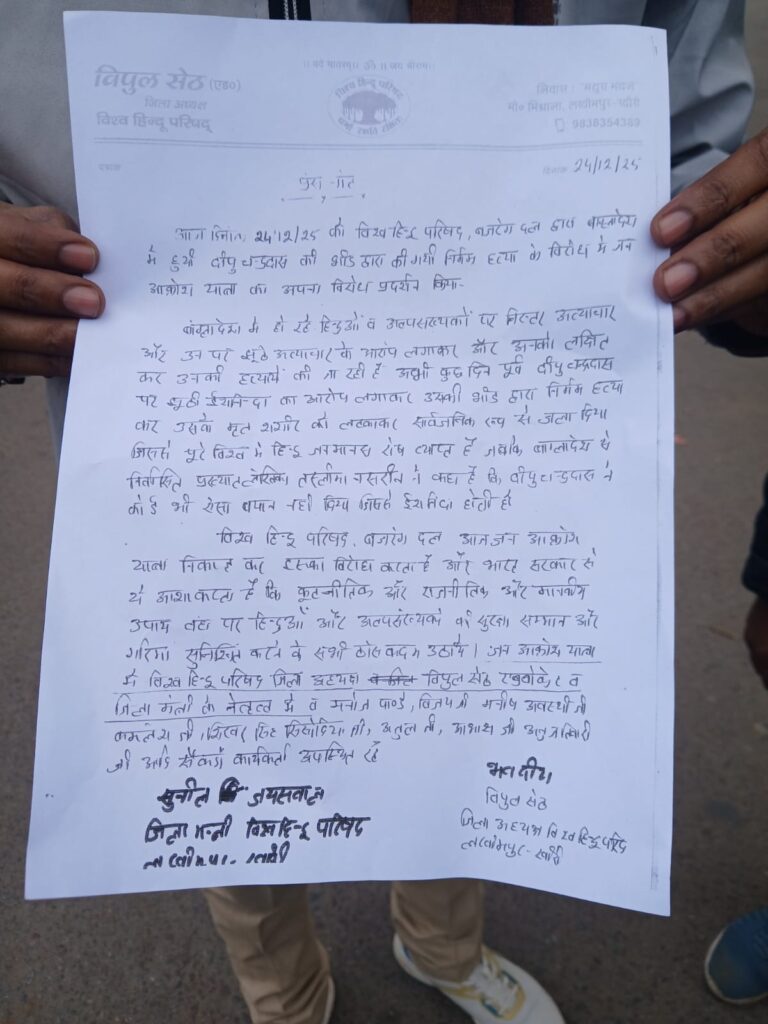 ।। धर्मो रक्षति रक्षितः ।। जय श्रीराम ।।
विपुल सेठ (एड०)
जिला अध्यक्ष
विश्व हिन्दू परिषद्
विश्व हिन्दू परिषद
धर्मो रक्षति रक्षितः
निवास :
मो० मिश्राना, लखीमपुर-खीरी
9838354389
पत्रांक
दिनांक 24/12/25
प्रेस-नोट
आज दिनांक 24/12/25 को विश्व हिन्दू परिषद, बजरंग दल द्वारा बांग्लादेश
मे हुयी दीपु चन्द्रदास की भीड द्वारा की गयी निर्मम हत्या के विरोध मे जन
आक्रोश यात्रा का अपना विरोध प्रदर्शन किया-
बांग्लादेश मे हो रहे हिन्दुओं व अल्पसंख्यकों पर निरन्तर अत्याचार
और उन पर झूठे अत्याचार के आरोप लगाकर और उनको लक्षित
कर उनकी हत्यायें की जा रही हैं अभी कुछ दिन पूर्व दीपु चन्द्रदास
पर झूठी ईशनिन्दा का आरोप लगाकर उसकी भीड द्वारा निर्मम हत्या
कर उसके मृत शरीर को लटकाकर सार्वजनिक रूप से जला दिया
जिससे पूरे विश्व मे हिन्दू जनमानस रोष व्याप्त है जबकि बांग्लादेश से
निर्वासित प्रख्यात लेखिका तस्लीमा नसरीन ने कहा है कि दीपु चन्द्रदास ने
कोई भी ऐसा बयान नही दिया जिससे ईशनिंदा होती हो
विश्व हिन्दू परिषद, बजरंग दल आज जन आक्रोश
यात्रा निकाल कर इसका विरोध करता है और भारत सरकार से
ये आशा करता है कि कूटनीतिक और राजनीतिक और मानवीय
उपाय वहां पर हिन्दुओं और अल्पसंख्यको की सुरक्षा सम्मान और
गरिमा सुनिश्चित करने के सभी ठोस कदम उठाये। जन आक्रोश यात्रा
मे विश्व हिन्दू परिषद जिला अध्यक्ष विपुल सेठ एडवोकेट व
जिला मंत्री के नेतृत्व मे व मनोज पाण्डे, विजय जी मनीष अवस्थी जी
जी, सिंह सिसोदिया जी, अतुल जी, आकाश जी
जी आदि सैकडो कार्यकर्ता उपस्थित रहे
सुनील जयसवाल
जिला मन्त्री विश्व हिन्दू परिषद
लखीमपुर-खीरी
भवदीय
विपुल सेठ
जिला अध्यक्ष विश्व हिन्दू परिषद
लखीमपुर-खीरी